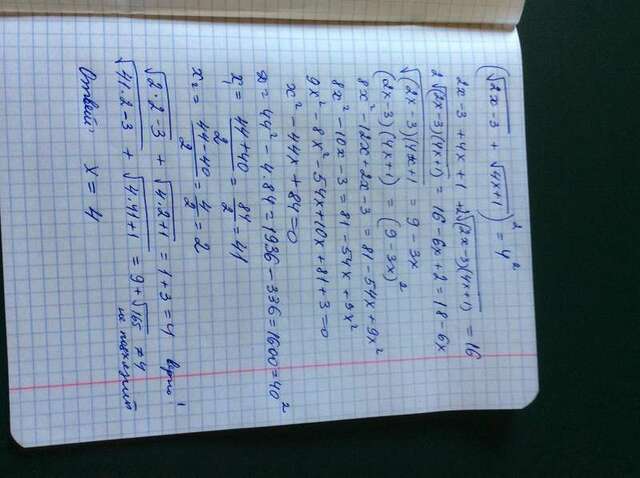 (√2x-3 + √4x+1)² = 4²
2x-3+4x+1+2√(2x-3)(4x+1) = 16
2√(2x-3)(4x+1) = 16-6x+2 = 18-6x
√(2x-3)(4x+1) = 9-3x
(2x-3)(4x+1) = (9-3x)²
8x²-12x+2x-3 = 81-54x+9x²
8x²-10x-3 = 81-54x+9x²
9x²-8x²-54x+10x+81+3=0
x²-44x+84=0
D=44²-4·84=1936-336=1600=40²
x₁ = (44+40)/2 = 84/2 = 41
x₂ = (44-40)/2 = 4/2 = 2
√2·2-3 + √4·2+1 = 1+3=4 верно
√41·2-3 + √4·41+1 = 9+√165 ≠4
не походит
Ответ: x=4